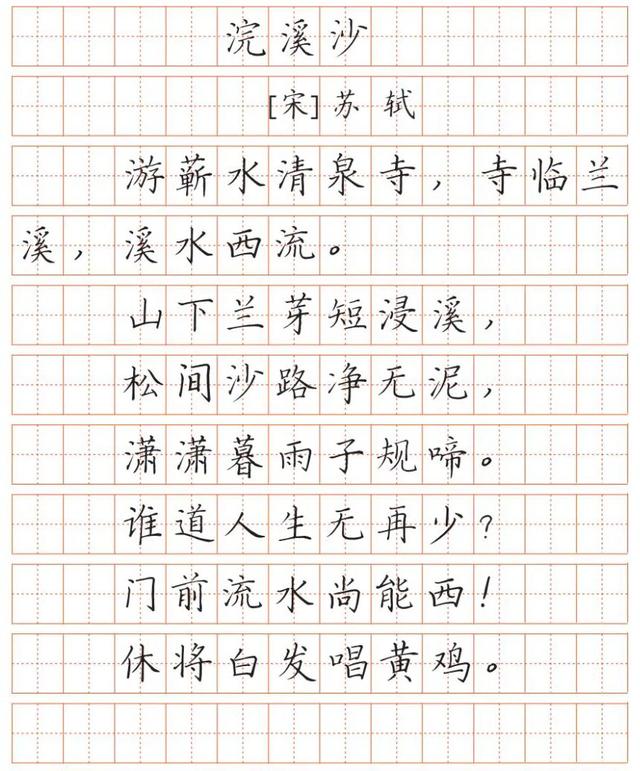 浣溪沙
[宋]苏轼
游蕲水清泉寺，寺临兰
溪，溪水西流。
山下兰芽短浸溪，
松间沙路净无泥，
潇潇暮雨子规啼。
谁道人生无再少？
门前流水尚能西！
休将白发唱黄鸡。